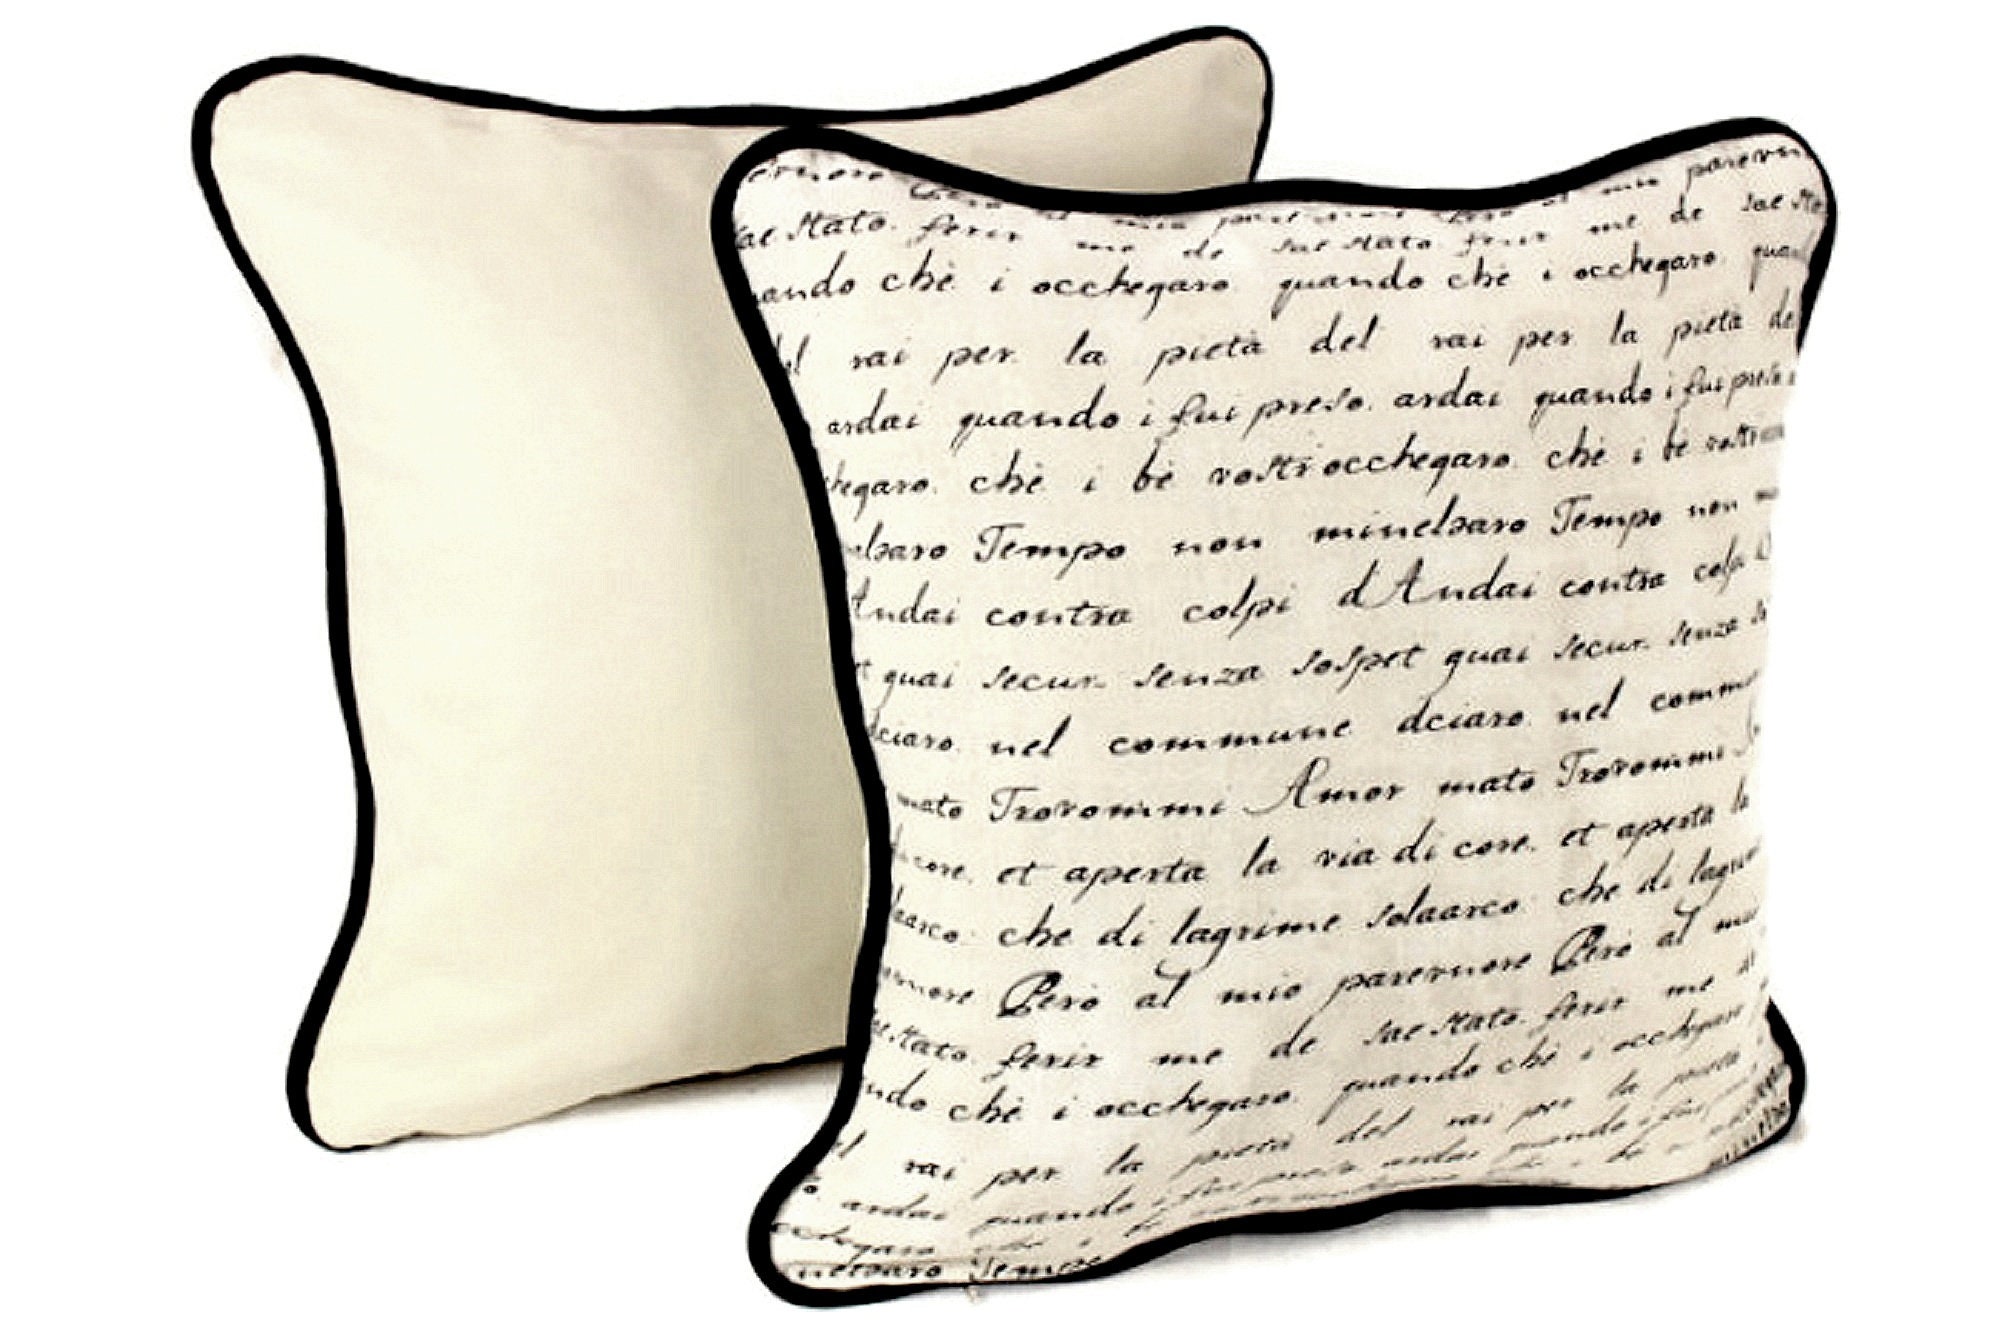 ernore Però al mio parernore Però al mio parerno
sae Stato. ferir me de sae Stato ferir me de sae Sta
ando chè i occhegaro quando chè i occhegaro quan
del rai per la pietà del rai per la pietà de
ardai quando i fui preso. ardai quando i fui preso
hegaro. chè i bè vostri occhegaro. chè i bè vostri
elsaro Tempo non minelsaro Tempo non
Andai contra colpi d'Andai contra colpi
et guai secur senza sospet guai secur senza
dciaro. nel commune dciaro. nel comm
mato Trovommi Amor mato Trovommi
di core. et aperta la via di core. et aperta la
aarco che di lagrime solaarco che di lagri
ernore Però al mio parernore Però al
sae Stato. ferir me de sae Stato. ferir me
ndo chè i occhegaro quando chè i occhegaro
rai per la pietà del rai per la pietà
ardai quando i fui preso ardai quando i fui
occhegaro chè i bè
nelsaro Tempo